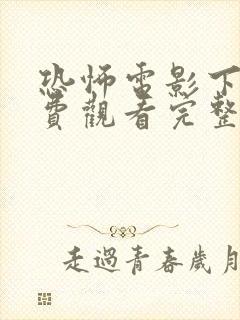 恐怖電影下
費觀看完整
走過青春歲月